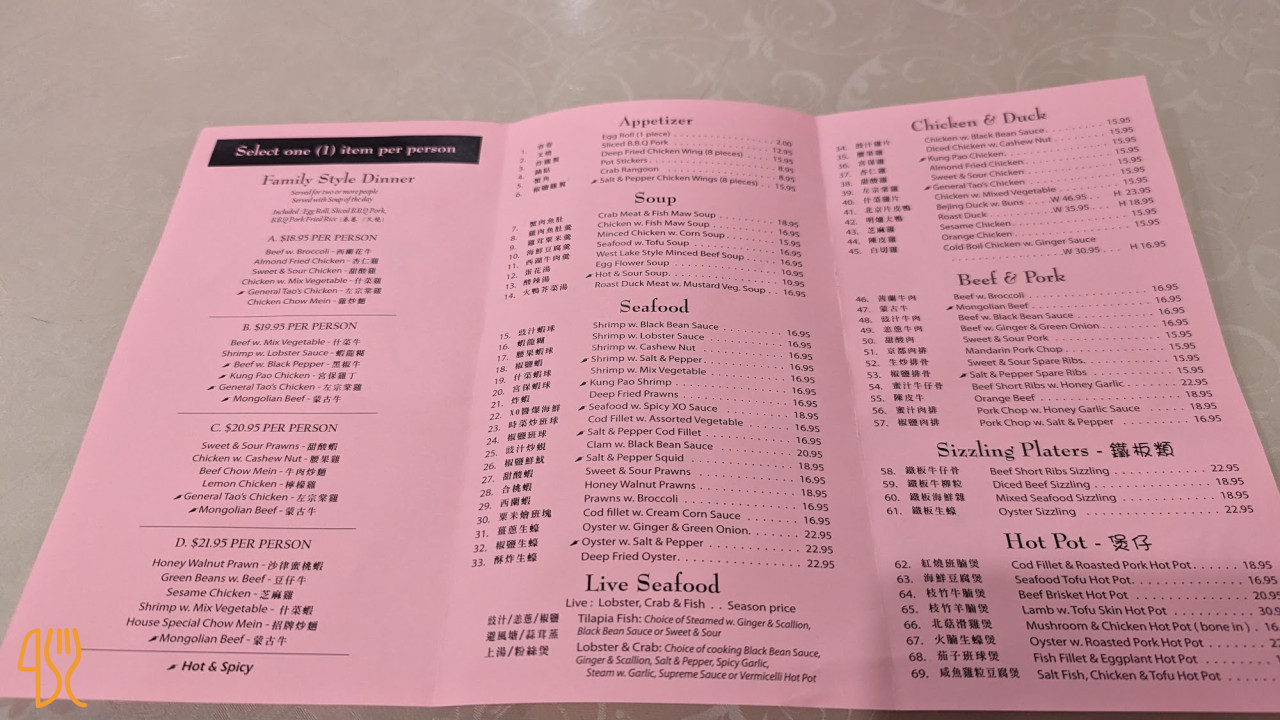 Select one (1) item per person
Family Style Dinner
Served for two or more people
Served with Soup of the day
Included : Egg Roll, Sliced B.B.Q Pork,
B.B.Q Pork Fried Rice
A. $18.95 PER PERSON
Beef w. Broccoli - 西蘭花牛
Almond Fried Chicken - 杏仁雞
Sweet & Sour Chicken - 甜酸雞
Chicken w. Mix Vegetable - 什菜雞
General Tao's Chicken - 左宗棠雞
Chicken Chow Mein - 雞炒麵
B. $19.95 PER PERSON
Beef w. Mix Vegetable - 什菜牛
Shrimp w. Lobster Sauce - 蝦龍糊
Beef w. Black Pepper - 黑椒牛
Kung Pao Chicken - 宮保雞丁
General Tao's Chicken - 左宗棠雞
Mongolian Beef - 蒙古牛
C. $20.95 PER PERSON
Sweet & Sour Prawns - 甜酸蝦
Chicken w. Cashew Nut - 腰果雞
Beef Chow Mein - 牛肉炒麵
Lemon Chicken - 檸檬雞
General Tao's Chicken - 左宗棠雞
Mongolian Beef - 蒙古牛
D. $21.95 PER PERSON
Honey Walnut Prawn - 沙津蜜桃蝦
Green Beans w. Beef - 豆仔牛
Sesame Chicken - 芝麻雞
Shrimp w. Mix Vegetable - 什菜蝦
House Special Chow Mein - 招牌炒麵
Mongolian Beef - 蒙古牛
Hot & Spicy
Appetizer
1. Egg Roll (1 piece) 2.00
2. 叉燒 Sliced B.B.Q Pork 12.95
3. Deep Fried Chicken Wing (8 pieces) 15.95
4. 鍋貼 Pot Stickers 8.95
5. 蟹角 Crab Rangoon 8.95
6. 椒鹽雞翼 Salt & Pepper Chicken Wings (8 pieces) 15.95
Soup
7. 蟹肉魚肚 Crab Meat & Fish Maw Soup 18.95
8. 雞肉魚肚羹 Chicken w. Fish Maw Soup 16.95
9. 雞茸粟米羹 Minced Chicken w. Corn Soup 15.95
10. 海鮮豆腐羹 Seafood w. Tofu Soup 16.95
11. 西湖牛肉羹 West Lake Style Minced Beef Soup 16.95
12. 蛋花湯 Egg Flower Soup 10.95
13. 酸辣湯 Hot & Sour Soup 10.95
14. 火鴨芥菜湯 Roast Duck Meat w. Mustard Veg. Soup 16.95
Seafood
15. 豉汁蝦球 Shrimp w. Black Bean Sauce 16.95
16. 蝦龍糊 Shrimp w. Lobster Sauce 16.95
17. 腰果蝦球 Shrimp w. Cashew Nut 16.95
18. 椒鹽蝦 Shrimp w. Salt & Pepper 16.95
19. 什菜蝦球 Shrimp w. Mix Vegetable 16.95
20. 宮保蝦球 Kung Pao Shrimp 16.95
21. 炸蝦 Deep Fried Prawns 16.95
22. XO醬爆海鮮 Seafood w. Spicy XO Sauce 18.95
23. 時菜炒班球 Cod Fillet w. Assorted Vegetable 16.95
24. 椒鹽班球 Salt & Pepper Cod Fillet 16.95
25. 豉汁炒蜆 Clam w. Black Bean Sauce 20.95
26. 椒鹽鮮魷 Salt & Pepper Squid 18.95
27. 甜酸蝦 Sweet & Sour Prawns 16.95
28. 合桃蝦 Honey Walnut Prawns 18.95
29. 西蘭蝦 Prawns w. Broccoli 16.95
30. 粟米燴班塊 Cod fillet w. Cream Corn Sauce 16.95
31. 薑蔥生蠔 Oyster w. Ginger & Green Onion. 22.95
32. 椒鹽生蠔 Oyster w. Salt & Pepper 22.95
33. 酥炸生蠔 Deep Fried Oyster. 22.95
Live Seafood
Live : Lobster, Crab & Fish . . Season price
豉汁/恙蔥/椒鹽 Tilapia Fish: Choice of Steamed w. Ginger & Scallion,
避風塘/蒜茸蒸 Black Bean Sauce or Sweet & Sour
上湯/粉絲煲 Lobster & Crab: Choice of cooking Black Bean Sauce,
Ginger & Scallion, Salt & Pepper, Spicy Garlic,
Steam w. Garlic, Supreme Sauce or Vermicelli Hot Pot
Chicken & Duck
34. 豉汁雞片 Chicken w. Black Bean Sauce 15.95
35. Diced Chicken w. Cashew Nut 15.95
36. 宮保雞 Kung Pao Chicken 15.95
37. 杏仁雞 Almond Fried Chicken 15.95
38. 甜酸雞 Sweet & Sour Chicken 15.95
39. 左宗棠雞 General Tao's Chicken 15.95
40. 什菜雞片 Chicken w. Mixed Vegetable 15.95
41. 北京片皮鴨 Bejing Duck w. Buns W 46.95 H 23.95
42. 明爐大鴨 Roast Duck W 35.95 H 18.95
43. 芝麻雞 Sesame Chicken 15.95
44. 陳皮雞 Orange Chicken 15.95
45. 白切雞 Cold Boil Chicken w. Ginger Sauce
W 30.95 H 16.95
Beef & Pork
46. 西蘭牛肉 Beef w. Broccoli 16.95
47. 蒙古牛 Mongolian Beef 16.95
48. 豉汁牛肉 Beef w. Black Bean Sauce 16.95
49. 恙蔥牛肉 Beef w. Ginger & Green Onion 16.95
50. 甜酸肉 Sweet & Sour Pork 15.95
51. 京都肉排 Mandarin Pork Chop 15.95
52. 生炒排骨 Sweet & Sour Spare Ribs. 15.95
53. 椒鹽排骨 Salt & Pepper Spare Ribs 15.95
54. 蜜汁牛仔骨 Beef Short Ribs w. Honey Garlic 22.95
55. 陳皮牛 Orange Beef 18.95
56. 蜜汁肉排 Pork Chop w. Honey Garlic Sauce 18.95
57. 椒鹽肉排 Pork Chop w. Salt & Pepper 16.95
Sizzling Platers - 鐵板類
58. 鐵板牛仔骨 Beef Short Ribs Sizzling 22.95
59. 鐵板牛柳粒 Diced Beef Sizzling 18.95
60. 鐵板海鮮雜 Mixed Seafood Sizzling 18.95
61. 鐵板生蠔 Oyster Sizzling 22.95
Hot Pot - 煲仔
62. 紅燒班腩煲 Cod Fillet & Roasted Pork Hot Pot 18.95
63. 海鮮豆腐煲 Seafood Tofu Hot Pot. 16.95
64. 枝竹牛腩煲 Beef Brisket Hot Pot 20.95
65. 枝竹羊腩煲 Lamb w. Tofu Skin Hot Pot 30.9
66. 北菇滑雞煲 Mushroom & Chicken Hot Pot ( bone in ) . 16.
67. 火腩生蠔煲 Oyster w. Roasted Pork Hot Pot 22
68. 茄子班球煲 Fish Fillet & Eggplant Hot Pot 1
69. 咸魚雞粒豆腐煲 Salt Fish, Chicken & Tofu Hot Pot